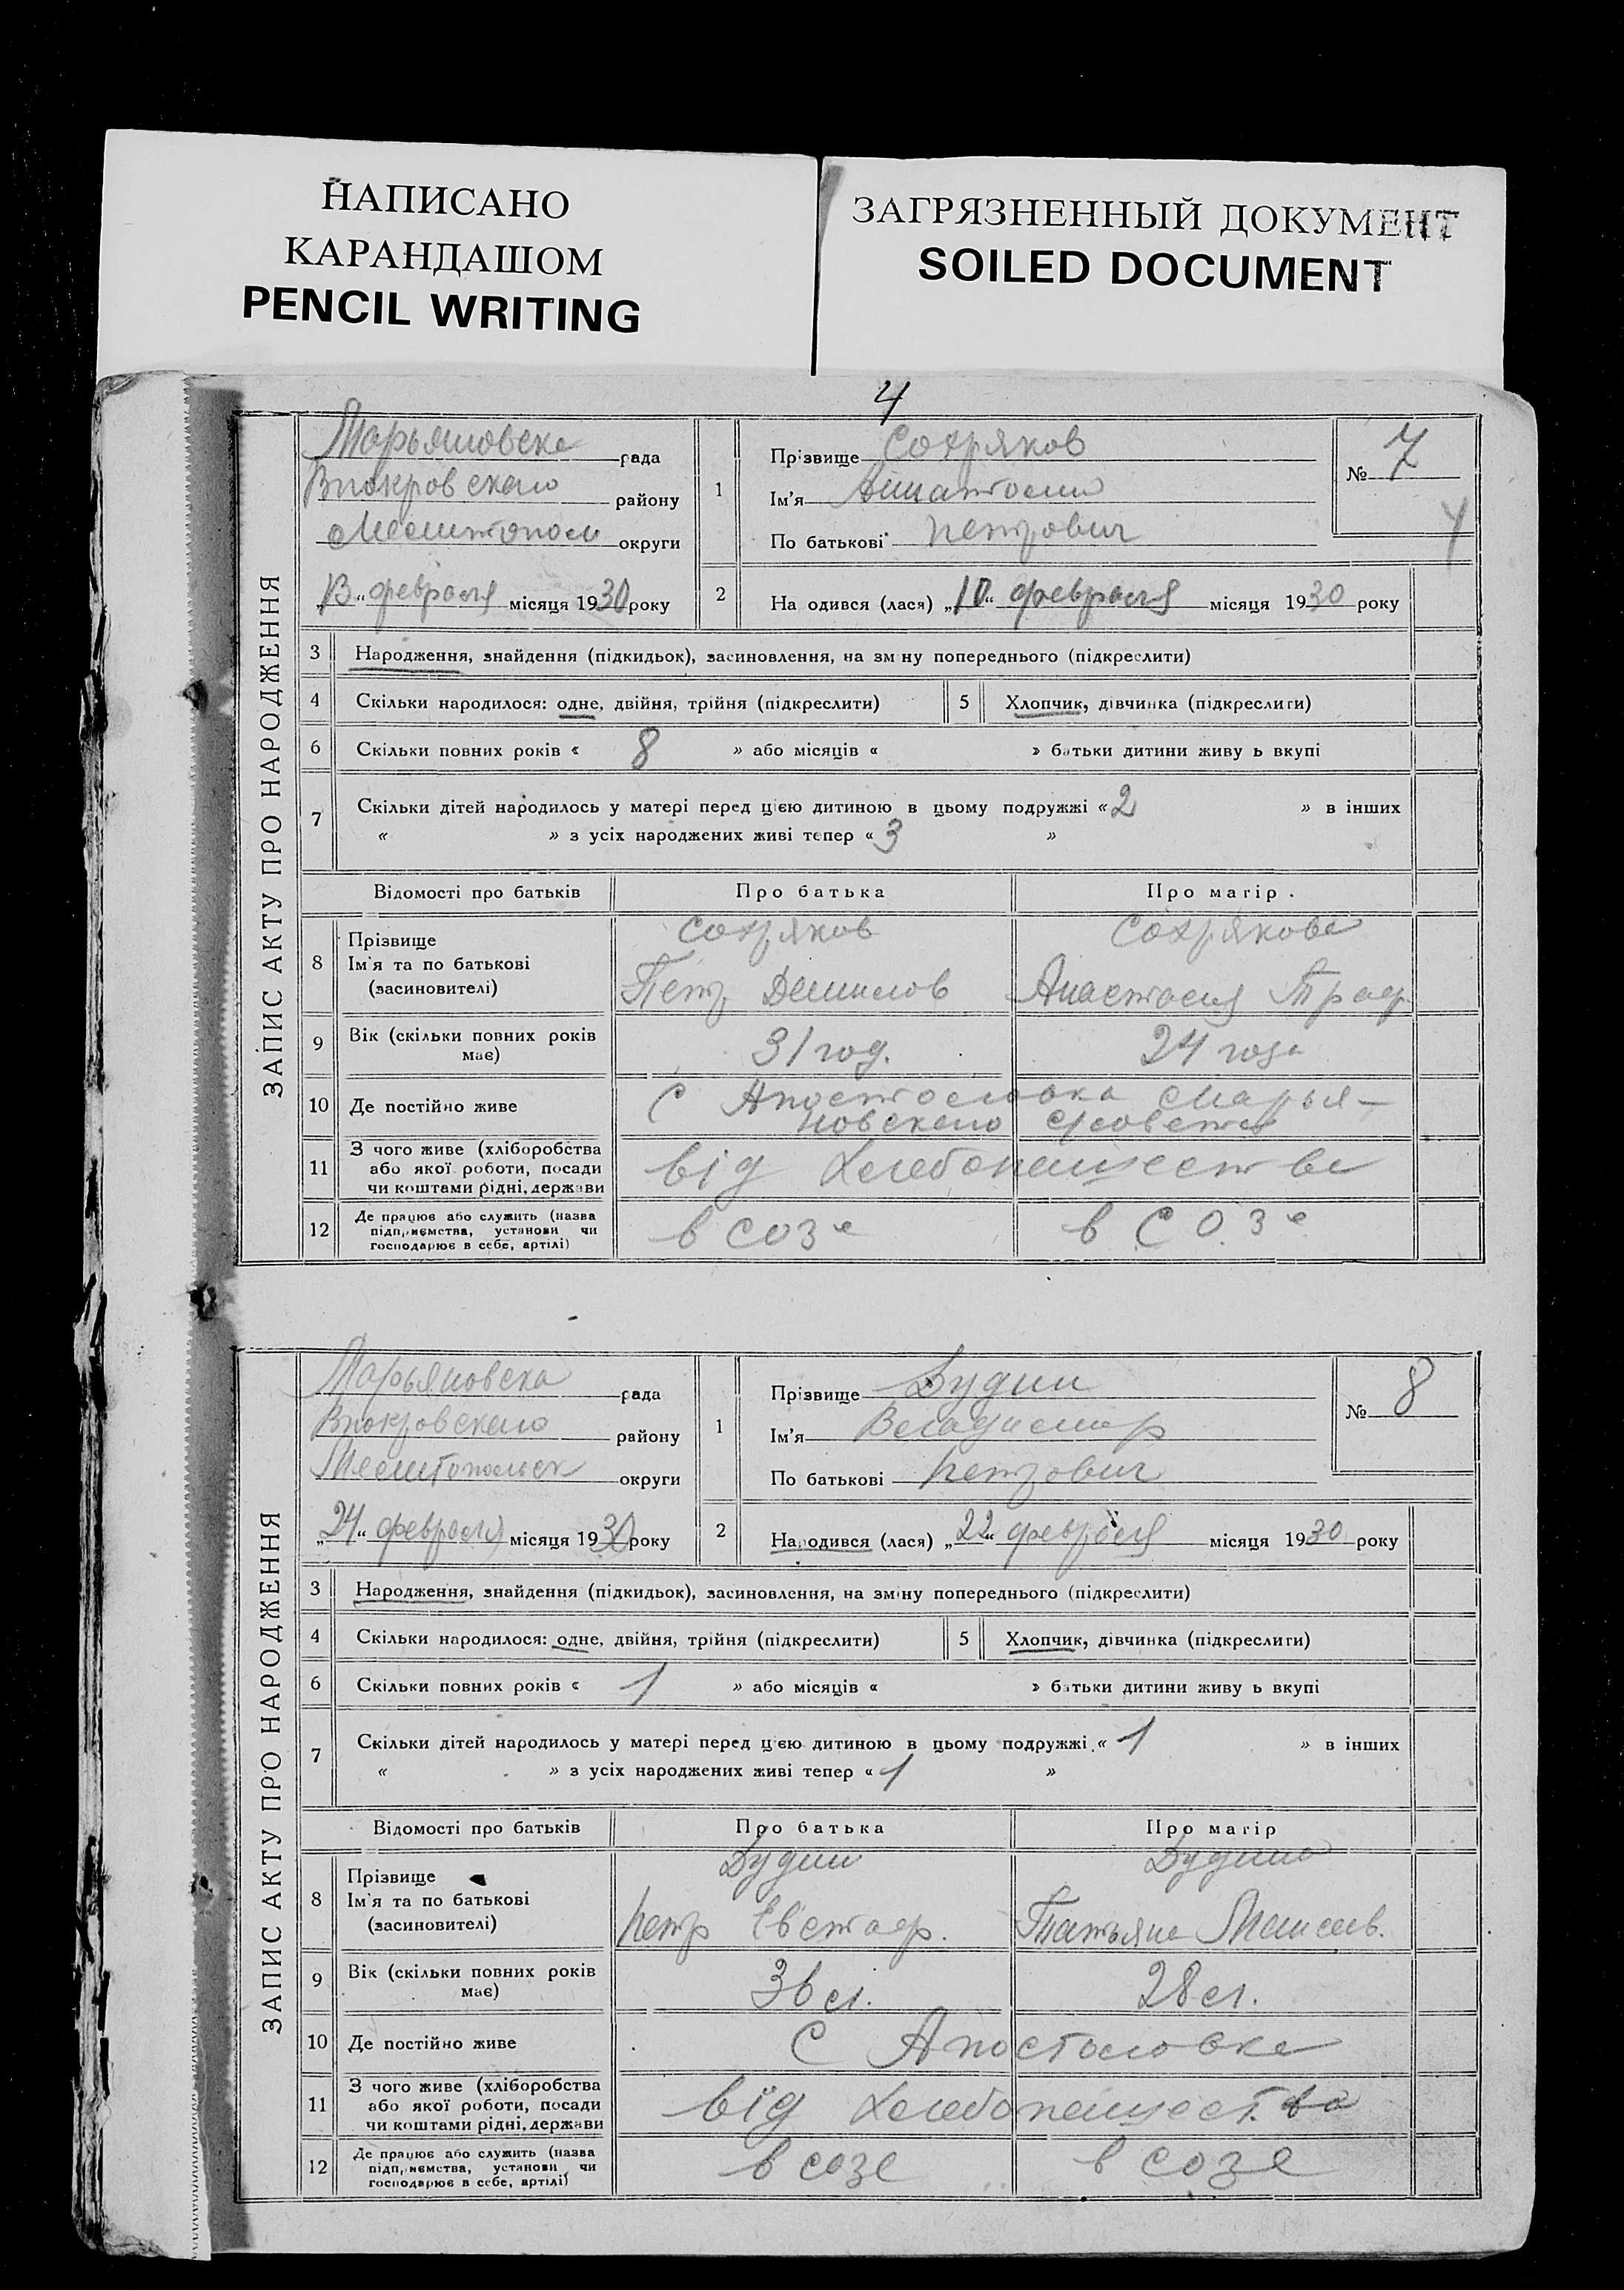 НАПИСАНО
КАРАНДАШОМ
PENCIL WRITING
ЗАГРЯЗНЕННЫЙ ДОКУМЕНТ
SOILED DOCUMENT
4
ЗАПИС АКТУ ПРО НАРОДЖЕННЯ
Марьяновска рада
Впокровского району
Мелитопол округи
„13“ февраля місяця 1930 року
1 Прізвище Сохряков
Ім'я Анатолий
По батькові Петрович
№ 7
4
2 На одився (лася) „10“ февраля місяця 1930 року
3 Народження, знайдення (підкидьок), засиновлення, на зм ну попереднього (підкреслити)
4 Скільки народилося: одне, двійня, трійня (підкреслити) 5 Хлопчик, дівчинка (підкреслити)
6 Скільки повних років « 8 » або місяців « » батьки дитини живу ь вкупі
7 Скільки дітей народилось у матері перед цією дитиною в цьому подружжі « 2 » в інших
« » з усіх народжених живі тепер « 3 »
Відомості про батьків Про батька Про матір
8 Прізвище
Ім'я та по батькові
(засиновителі)
Сохряков
Петр Данилов
Сохрякова
Анастасия
9 Вік (скільки повних років
має)
31 год. 24 года
10 Де постійно живе С Апостоловка Марья-
новского с/совета
11 З чого живе (хліборобства
або якої роботи, посади
чи коштами рідні, держави
від хлебопашества
12 Де працює або служить (назва
підприємства, установи чи
господарює в себе, артілі)
в созе в С.О.З е
ЗАПИС АКТУ ПРО НАРОДЖЕННЯ
Марьяновска рада
Впокровского району
Мелитопольск округи
„24“ февраля місяця 1930 року
1 Прізвище Дудин
Ім'я Владимир
По батькові Петрович
№ 8
2 Народився (лася) „22“ февраля місяця 1930 року
3 Народження, знайдення (підкидьок), засиновлення, на зміну попереднього (підкреслити)
4 Скільки народилося: одне, двійня, трійня (підкреслити) 5 Хлопчик, дівчинка (підкреслити)
6 Скільки повних років « 1 » або місяців « » батьки дитини живу ь вкупі
7 Скільки дітей народилось у матері перед цією дитиною в цьому подружжі « 1 » в інших
« » з усіх народжених живі тепер « 1 »
Відомості про батьків Про батька Про матір
8 Прізвище
Ім'я та по батькові
(засиновителі)
Дудин
Петр Евстаф.
Дудина
Татьяна
9 Вік (скільки повних років
має)
36 л. 28 л.
10 Де постійно живе С Апостоловка
11 З чого живе (хліборобства
або якої роботи, посади
чи коштами рідні, держави
від хлебопашества
12 Де працює або служить (назва
підприємства, установи чи
господарює в себе, артілі)
в созе в созе